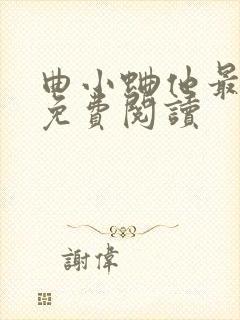 曲小蛐他最
免費閱讀
謝偉